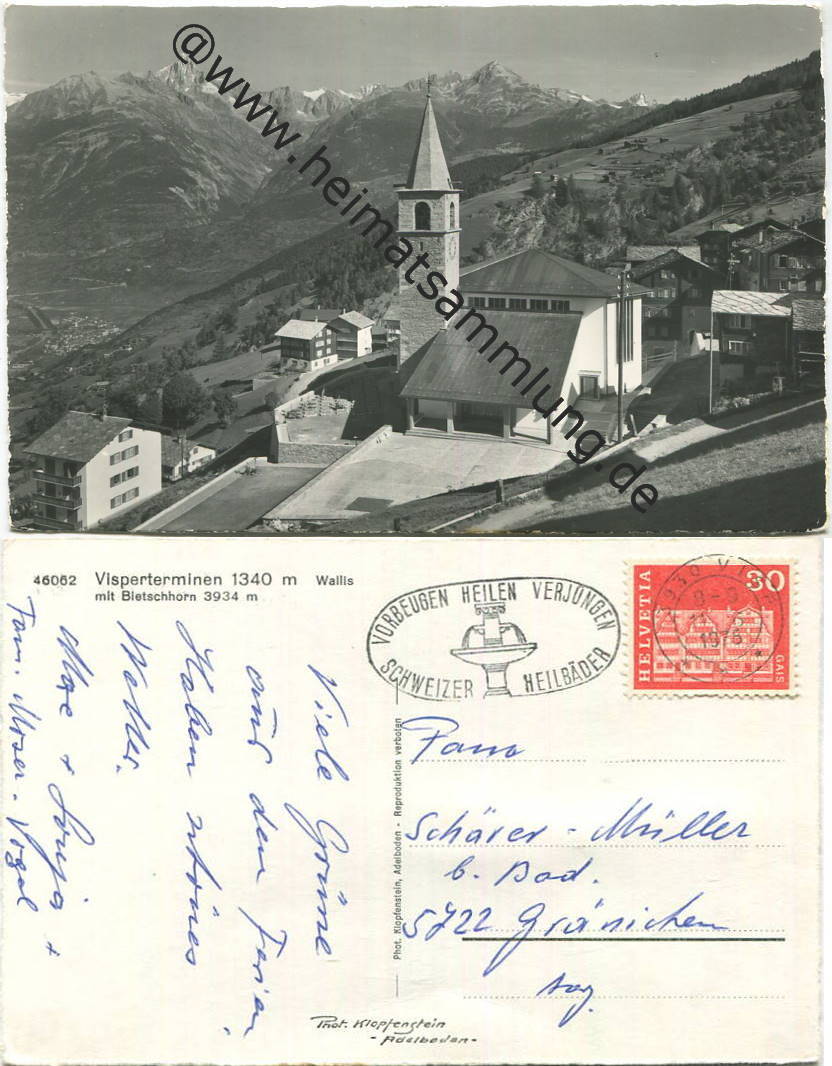 @www.heimatsammlung.de
46062 Visperterminen 1340 m Wallis
mit Bietschhorn 3934 m
VORBEUGEN HEILEN VERJÜNGEN
SCHWEIZER HEILBÄDER
3930 VISP
HELVETIA
30
GAIS
Viele Grüsse
aus den Ferien.
Haben schönes
Wetter.
Max + Sonja +
Fam. Moser-Vogel
Fam
Schärer-Müller
b. Bad.
5722 Gränichen
Aag.
Phot. Klopfenstein, Adelboden - Reproduktion verboten
Phot. Klopfenstein
- Adelboden -